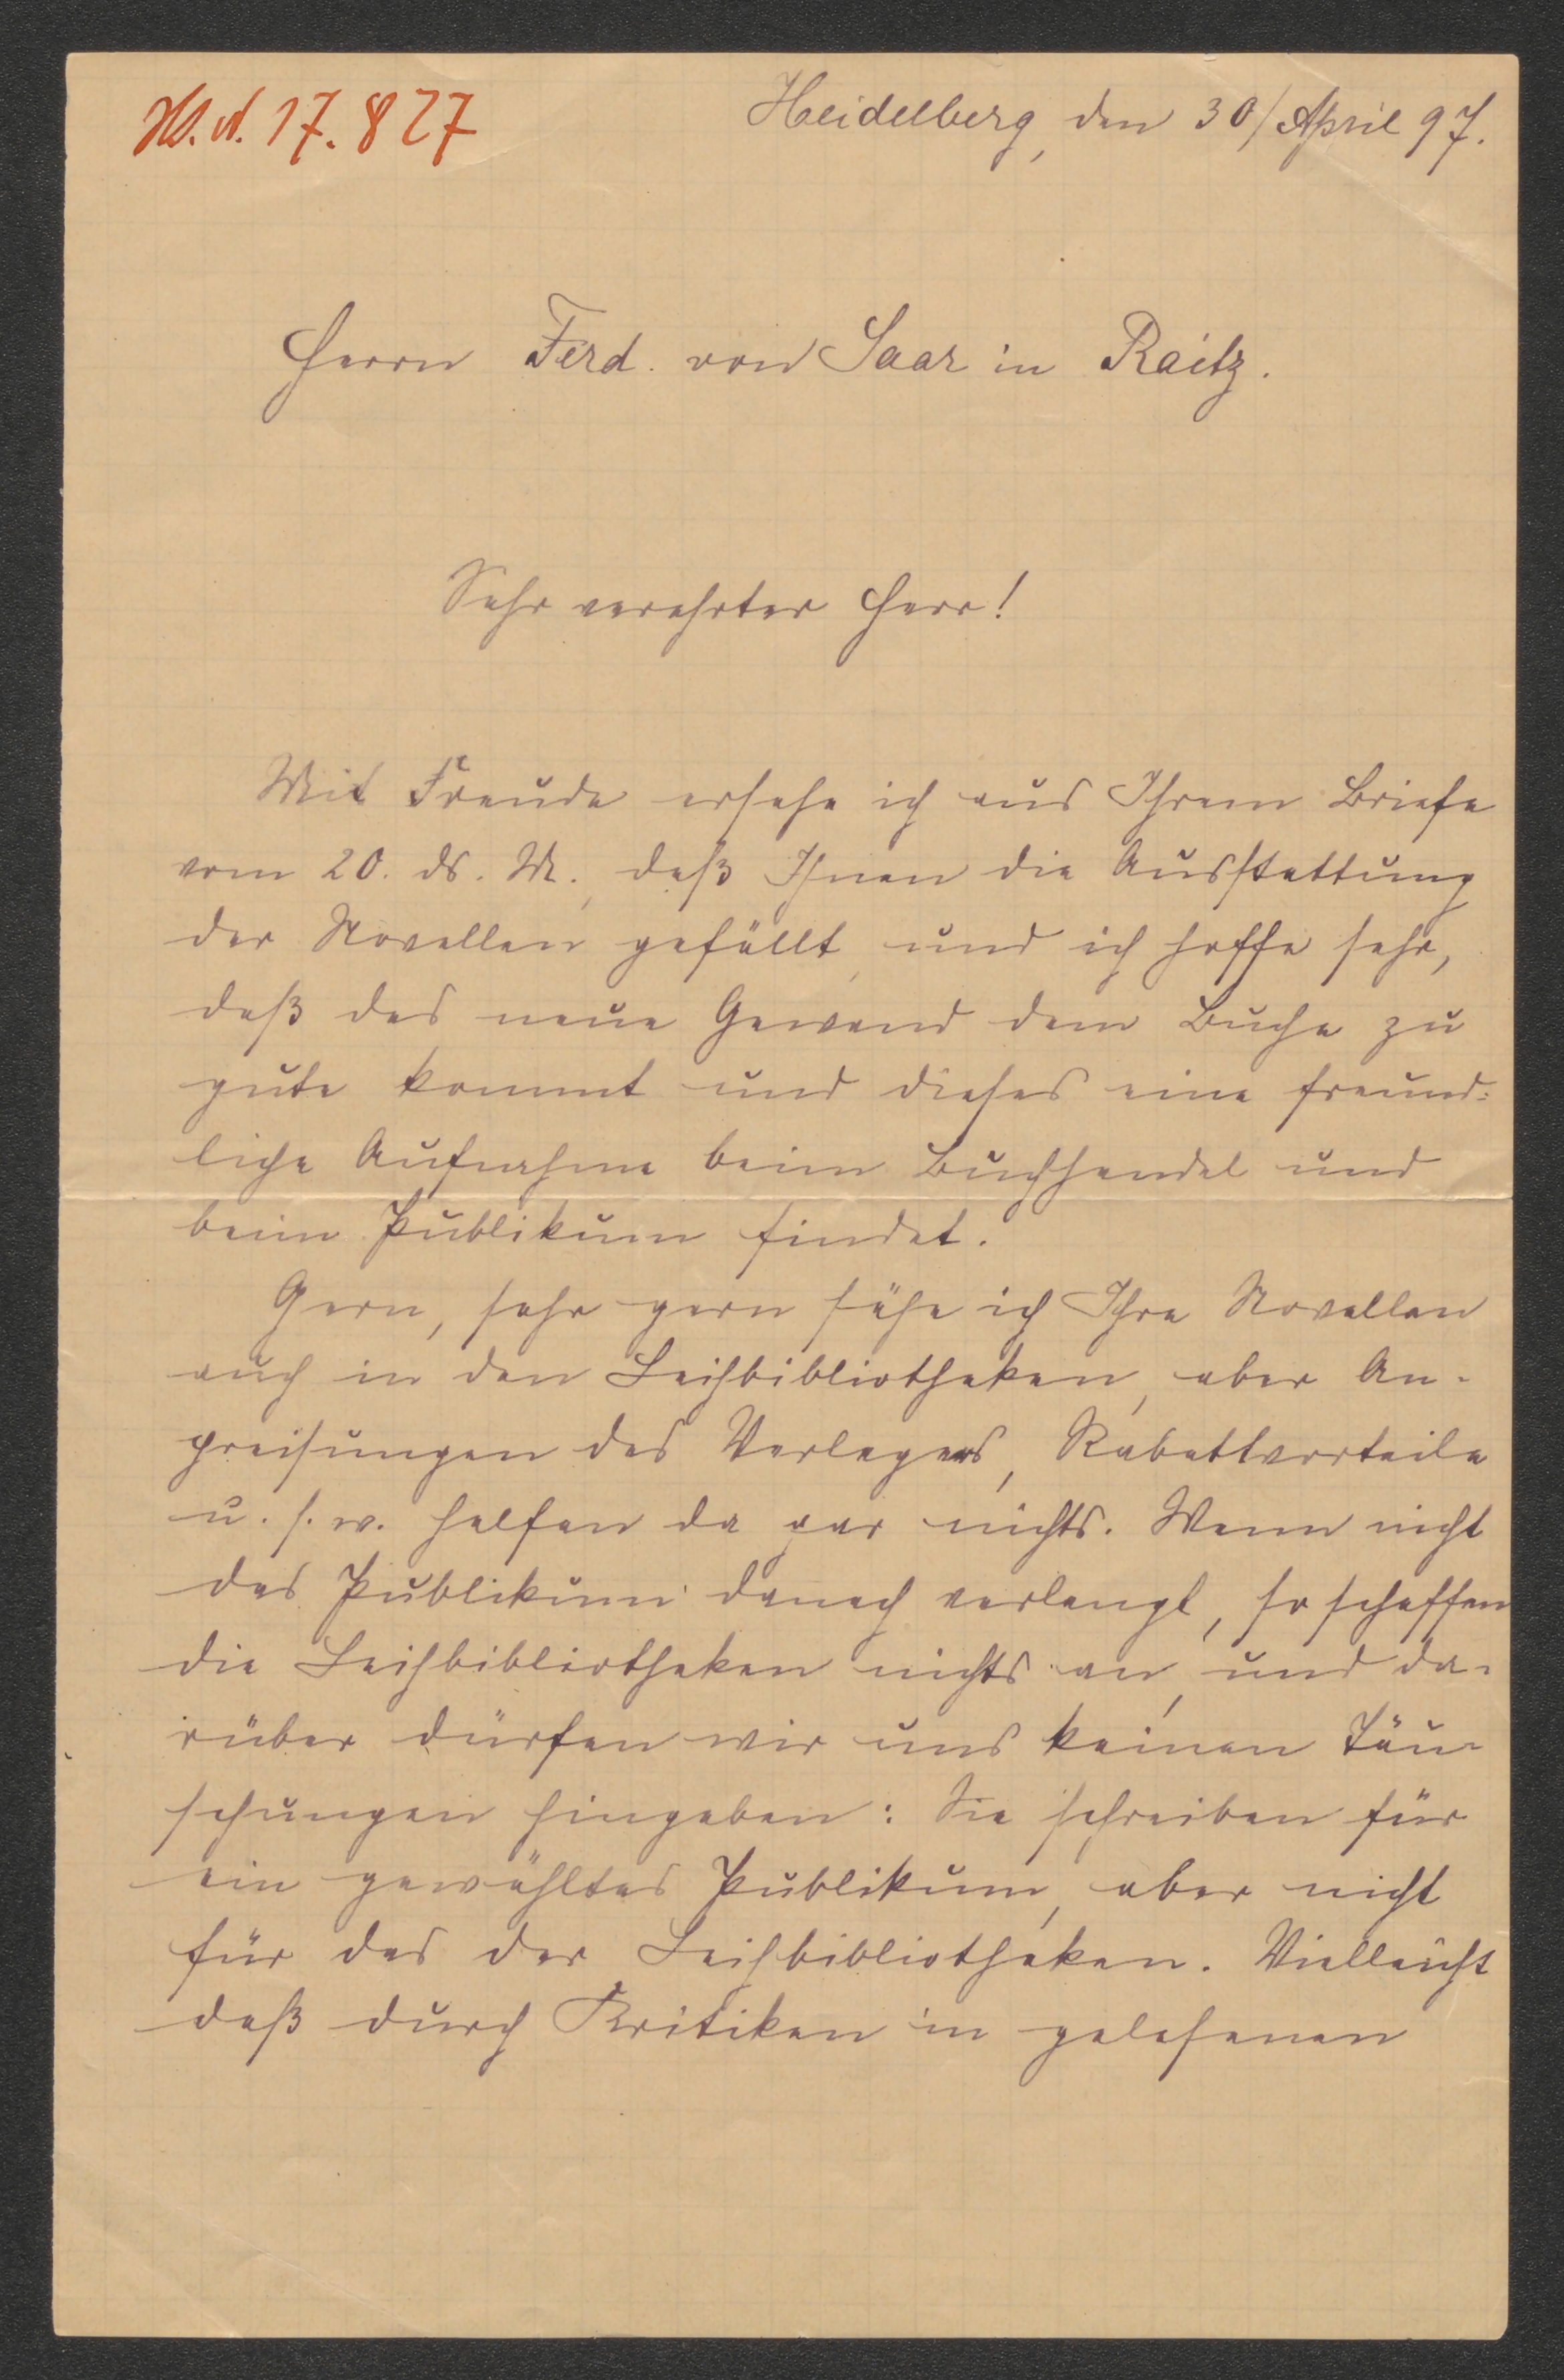 Heidelberg, den 30/April 97.
17.827
Herrn Ferd. von Saar in Raitz.
Sehr verehrter Herr!
Mit Freude ersehe ich aus Ihrem Briefe
vom 20. ds. M., daß Ihnen die Ausstattung
der Novellen gefällt, und ich hoffe sehr,
daß das neue Gewand dem Buche zu
gute kommt und dieses eine freund-
liche Aufnahme beim Buchhandel und
beim Publikum findet.
Gern, sehr gern sähe ich Ihre Novellen
auch in den Leihbibliotheken, aber An-
preisungen des Verlegers, Rabattvorteile
u. s. w. helfen da gar nichts. Wenn nicht
das Publikum danach verlangt, so schaffen
die Leihbibliotheken nichts an, und da-
rüber dürfen wir uns keinen Täu-
schungen hingeben: Sie schreiben für
ein gewähltes Publikum, aber nicht
für das der Leihbibliotheken. Vielleicht
daß durch Kritiken in gelesenen